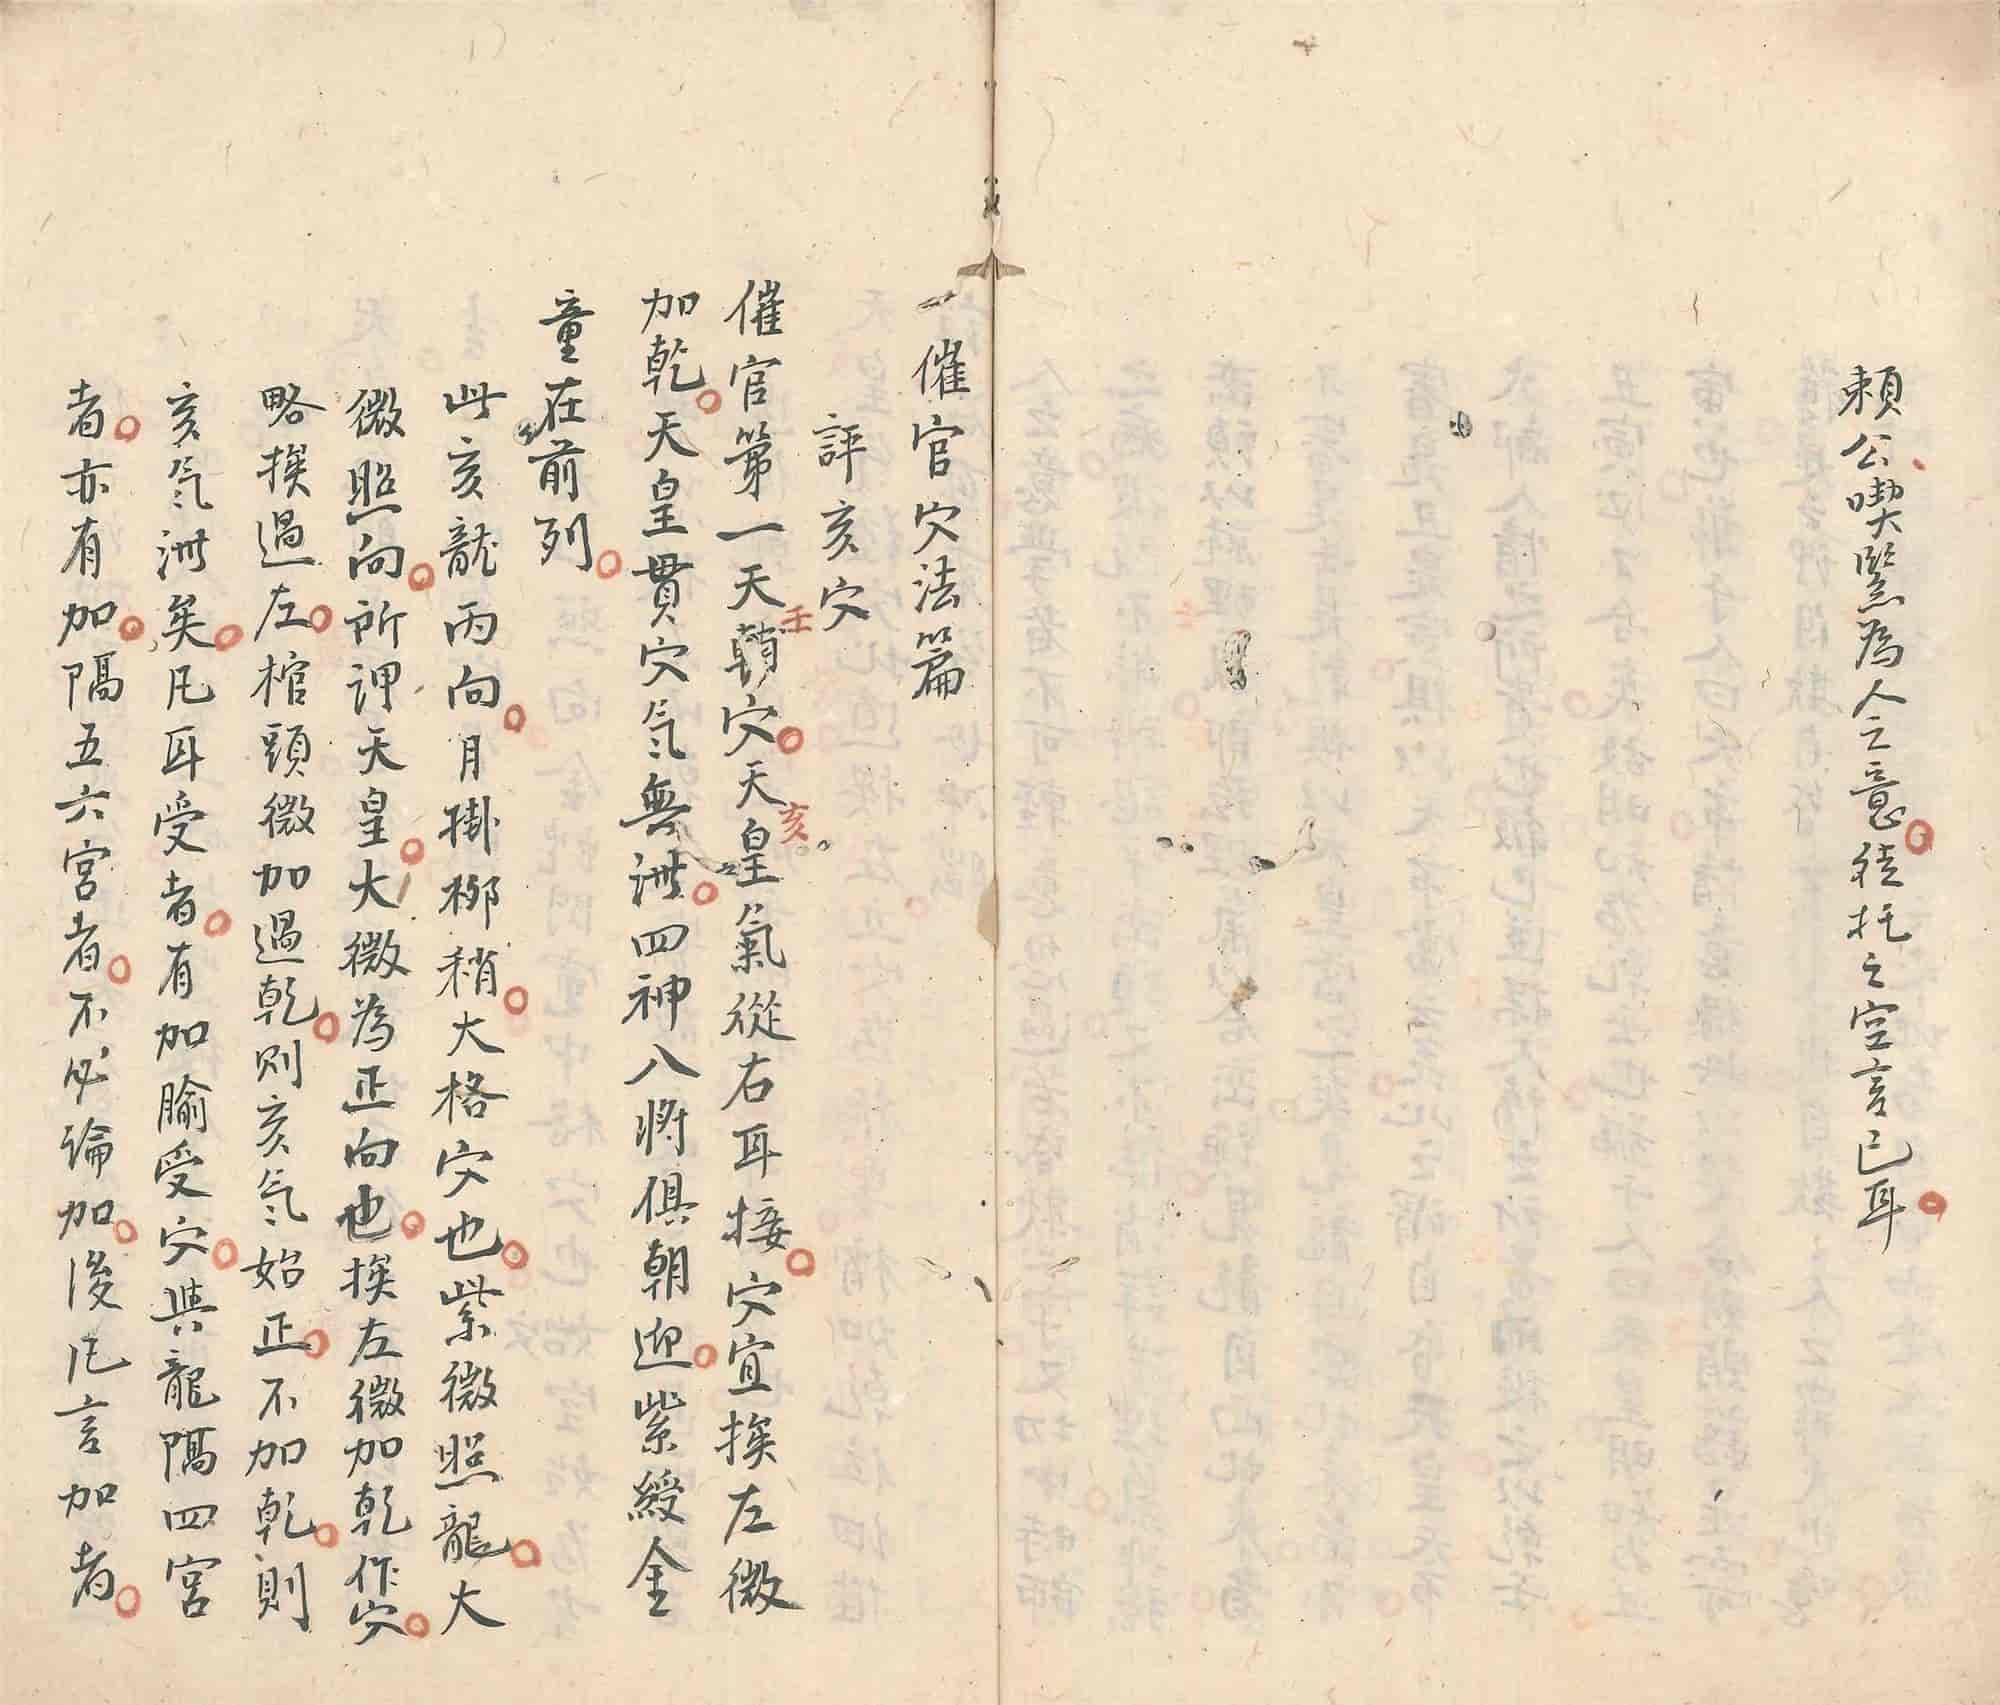 賴公喫緊為人之意徒托之空言已耳
一催官穴法篇
評亥穴
催官第一天輔壬穴天皇亥氣從右耳接穴宜挨左微
加乾天皇貫穴气無泄四神八將俱朝迎紫綬金
童在前列
此亥龍丙向月掛柳稍大格穴也紫微照龍大
微照向所謂天皇大微為正向也挨左微加乾作穴
略挨過左棺頭微加過乾則亥气始正不加乾則
亥气泄矣凡耳受者有加腧受穴與龍隔四宮
者亦有加隔五六宮者不必論加後凡言加者